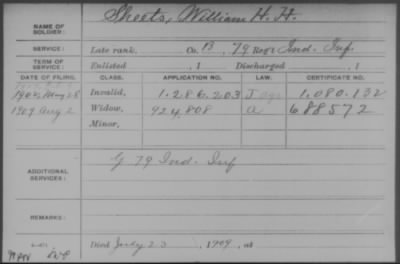 NAME OF SOLDIER: Sheets, William H. H.
SERVICE: Late rank, Co. B, 79 Reg't Ind. Inf.
TERM OF SERVICE: Enlisted , 1 Discharged , 1
DATE OF FILING. CLASS. APPLICATION NO. LAW. CERTIFICATE NO.
May 28 Invalid, 1.286.203 1.080.132
1909 Aug 2 Widow, 924,808 a 688572
Minor,
ADDITIONAL SERVICES: G 79 Ind. Inf
REMARKS:
Died July 23, 1909, at